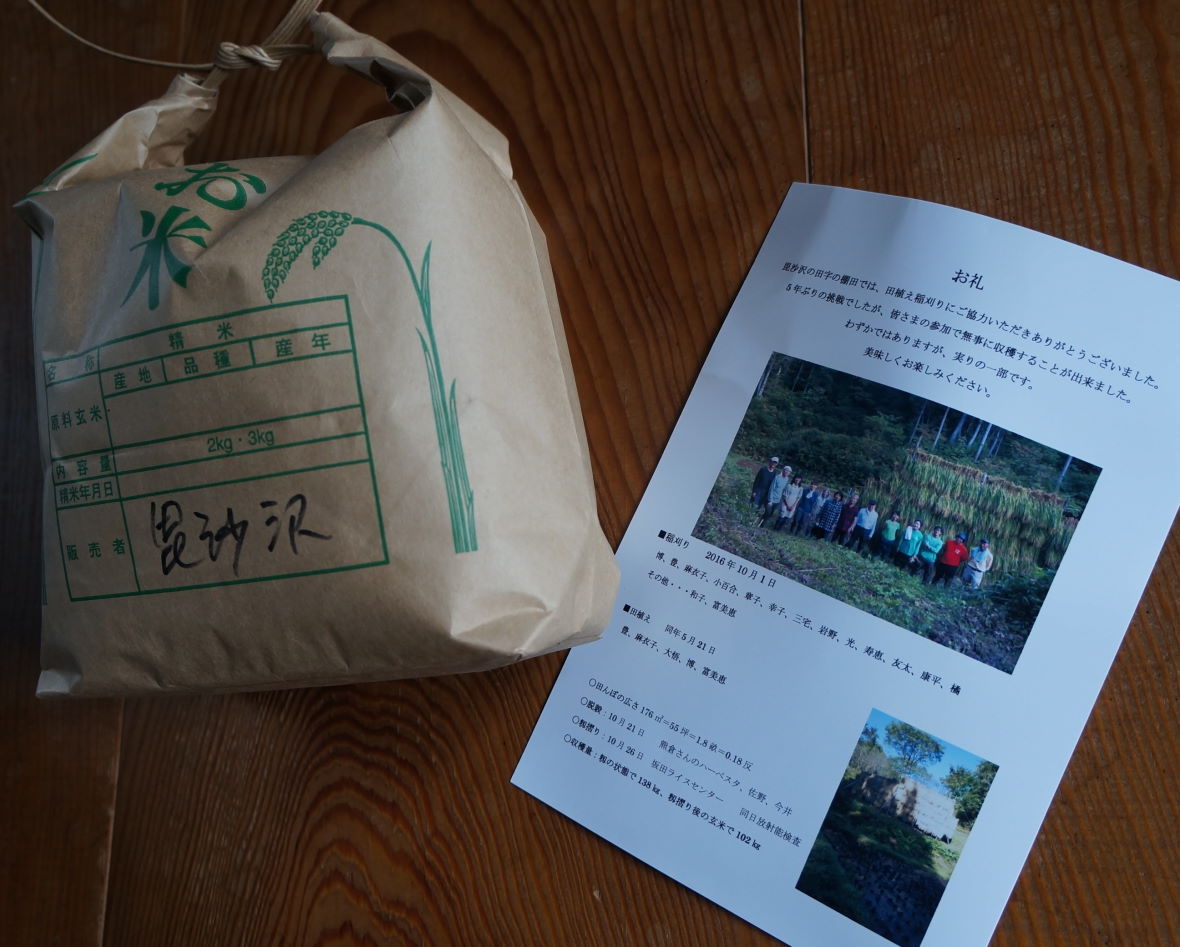 お米
精米
名称
産地 品種 産年
原料玄米
内容量 2kg・3kg
精米年月日
販売者 毘沙沢
お礼
毘沙沢の田字の棚田では、田植え稲刈りにご協力いただきありがとうございました。
5年ぶりの挑戦でしたが、皆さまの参加で無事に収穫することが出来ました。
わずかではありますが、実りの一部です。
美味しくお楽しみください。
■稲刈り 2016年10月1日
博、豊、麻衣子、小百合、華子、幸子、三宅、岩野、光、寿恵、友太、康平、橘
その他・・・和子、富美恵
■田植え 同年5月21日
豊、麻衣子、大悟、博、富美恵
○田んぼの広さ176㎡=55坪=1.8畝=0.18反
○脱穀:10月21日 熊倉さんのハーベスタ、佐野、今井
○籾摺り:10月26日 坂田ライスセンター 同日放射能検査
○収穫量:籾の状態で138㎏、籾摺り後の玄米で102㎏